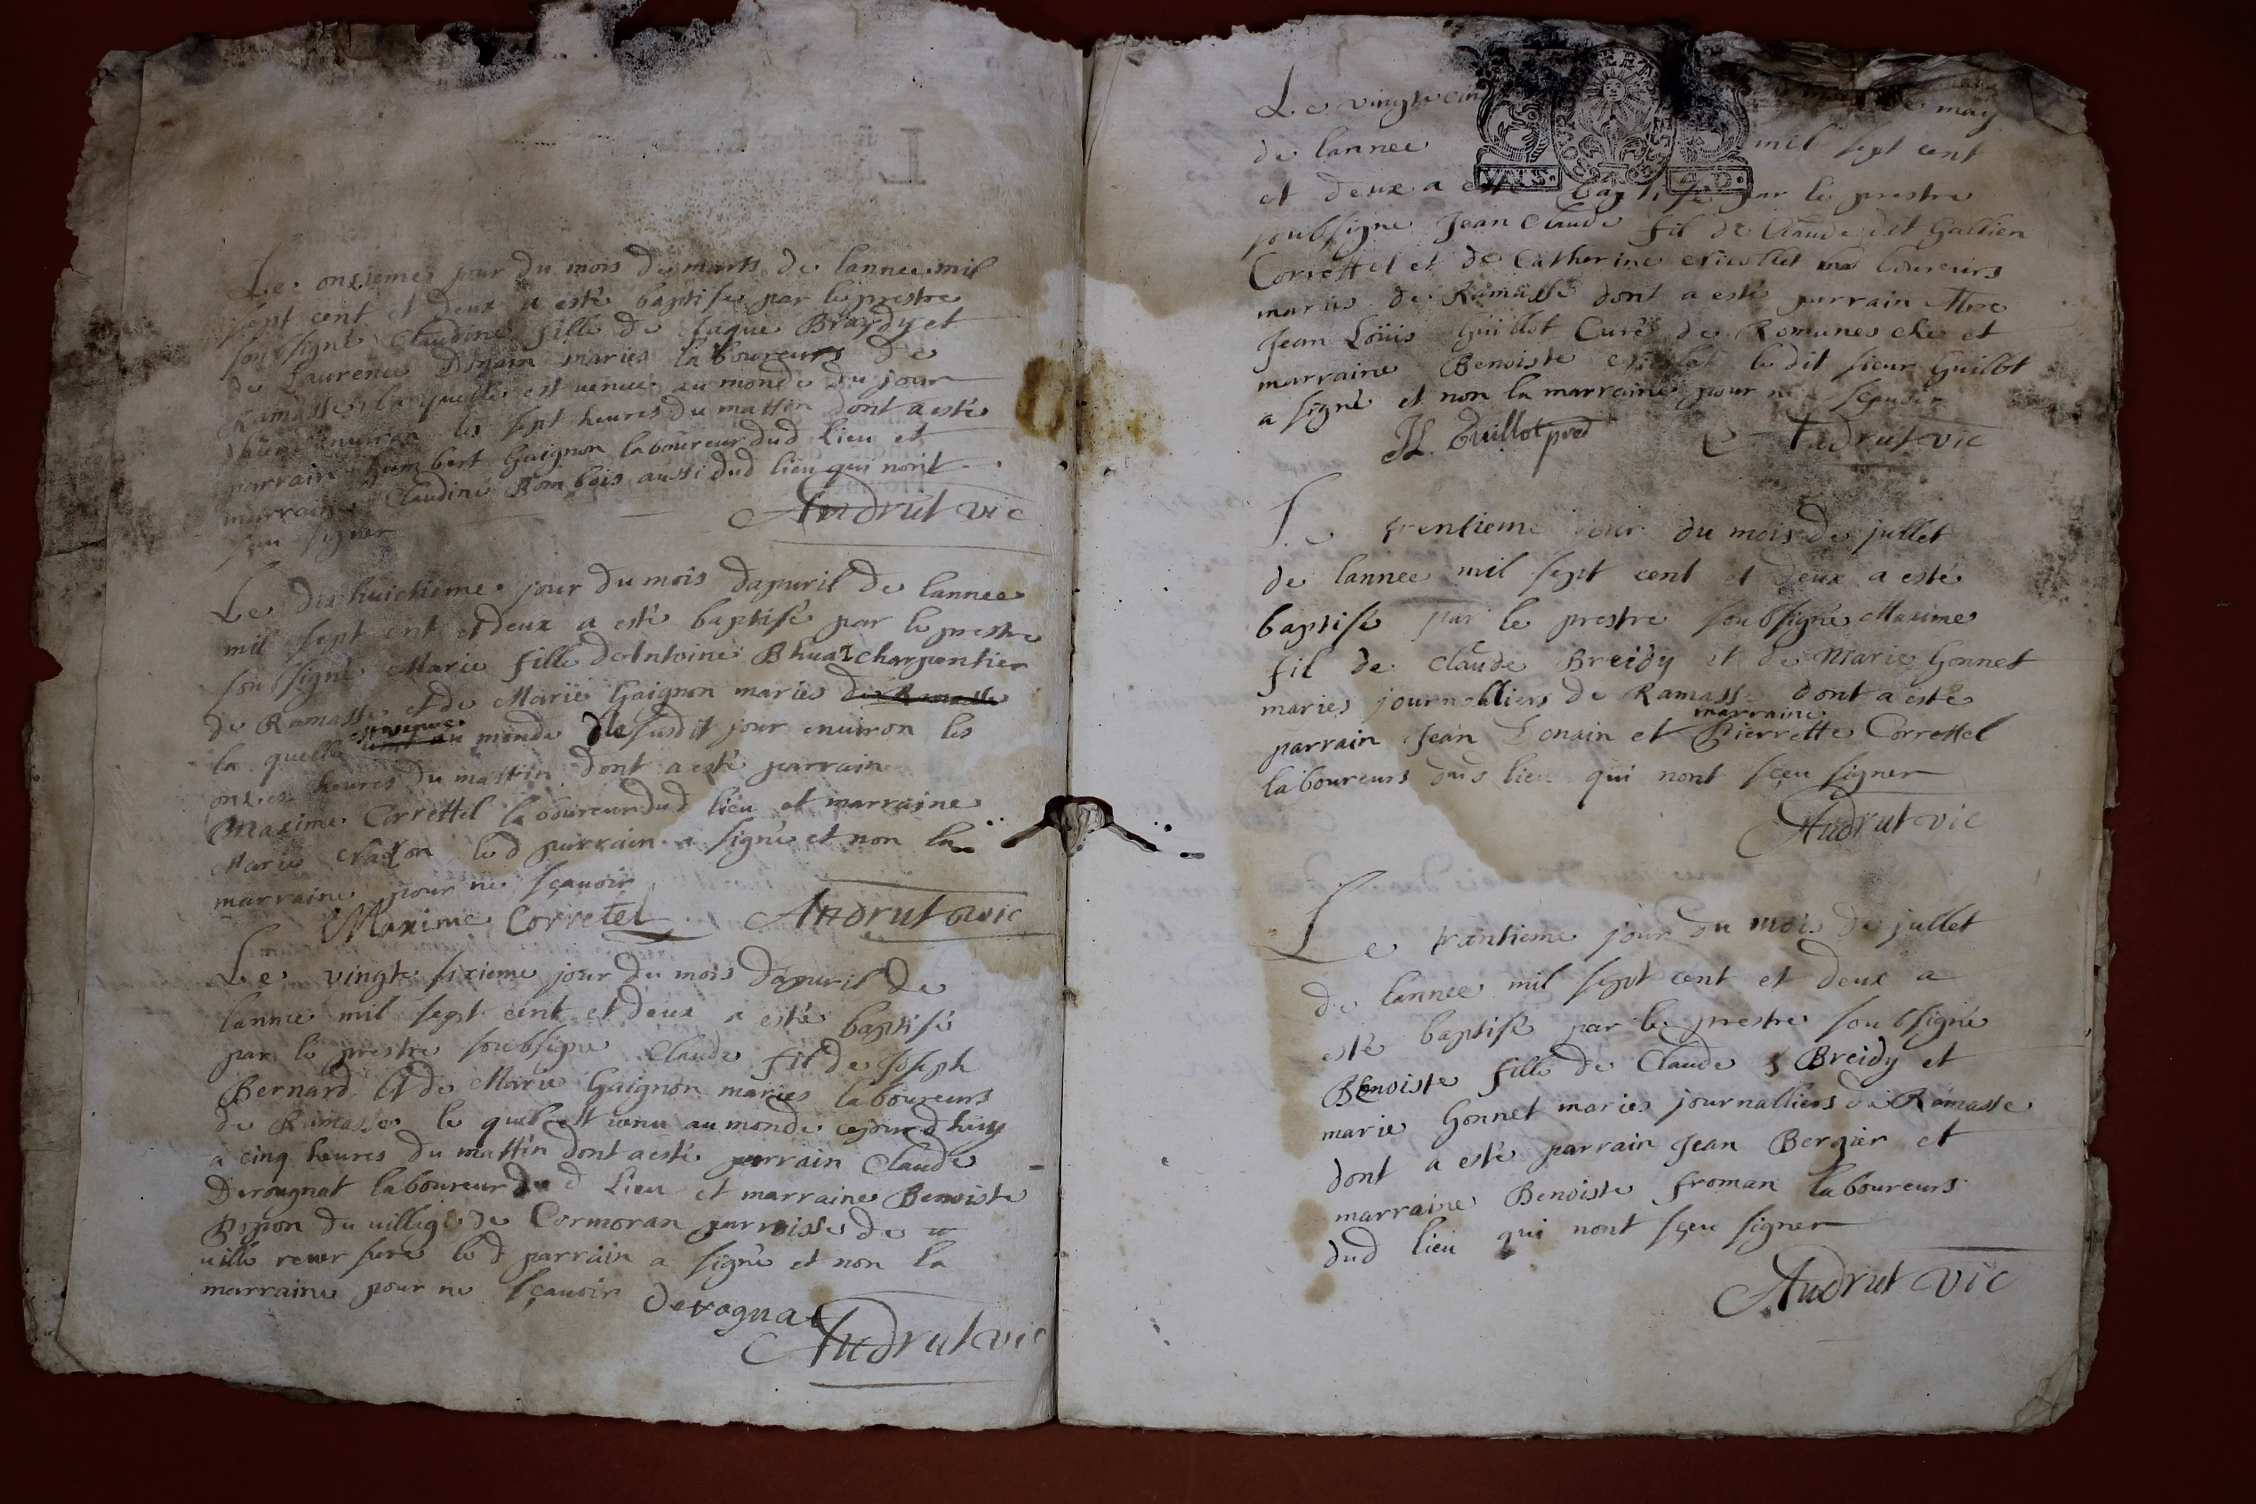 Le onzieme jour du mois de marts de lannee mil
sept cent et deux a esté baptisée par le prestre
soubsigné Claudine fille de Jaque Breydy et
de Laurence Donain mariés laboureurs de
Ramasse laquelle est venue au monde du jour
environ les sept heures du mattin dont a esté
parrain humbert Gaignon laboureur dud lieu et
marraine Claudine Rombois aussi dud lieu qui nont
sceu signer
Audrut vic
Le dix huictieme jour du mois dapuril de lannee
mil sept cent et deux a esté baptisé par le prestre
soubsigné Marie fille dAntoine Bhuat charpentier
de Ramasse et de Marie Gaignon mariés de Ramasse
la quelle est venue au monde le susdit jour environ les
onzes heures du mattin dont a esté parrain
Maxime Correttel laboureur dud lieu et marraine
Marie led parrain a signé et non la
marraine pour ne sçauoir
Maxime Corretel Audrut vic
Le vingt sixieme jour du mois dapuril de
lannee mil sept cent et deux a esté baptisé
par le prestre soubsigne Claude fil de Joseph
Bernard et de Marie Gaignon mariés laboureurs
de Ramasse le quel est venu au monde cejourdhuy
a cinq heures du mattin dont a esté parrain Claude
Derognat laboureur dud lieu et marraine Benoiste
Popon du village de Cormoran parroisse de
ville reuersure led parrain a signé et non la
marraine pour ne sçauoir Derognat
Audrut vic
Le vingt cin may
de lannee mil sept cent
et deux a esté baptisé par le prestre
soubsigne Jean Claude fil de Claude dit Gallien
Correttel et de Catherine laboureurs
mariés de Ramasse dont a esté parrain Mre
Jean Loüis Guillot Curé de Romanesche et
marraine Benoiste ledit sieur Guillot
a signé et non la marraine pour ne sçauoir
JL. Guillot Audrut vic
Le trentieme jour du mois de jullet
de lannee mil sept cent et deux a esté
baptisé par le prestre soubsigné Maxime
fil de Claude Breidy et de Marie Gonnet
mariés journalliers de Ramasse dont a esté
marraine
parrain Jean Donain et Pierrette Correttel
laboureurs dud lieu qui nont sçeu signer
Audrut vic
Le trantieme jour du mois de jullet
de lannee mil sept cent et deux a
esté baptisé par le prestre soubsigné
Benoiste fille de Claude Breidy et
marie Gonnet mariés journalliers de Ramasse
dont a esté parrain Jean Bergier et
marraine Benoiste froman laboureurs
dud lieu qui nont sçeu signer
Audrut vic